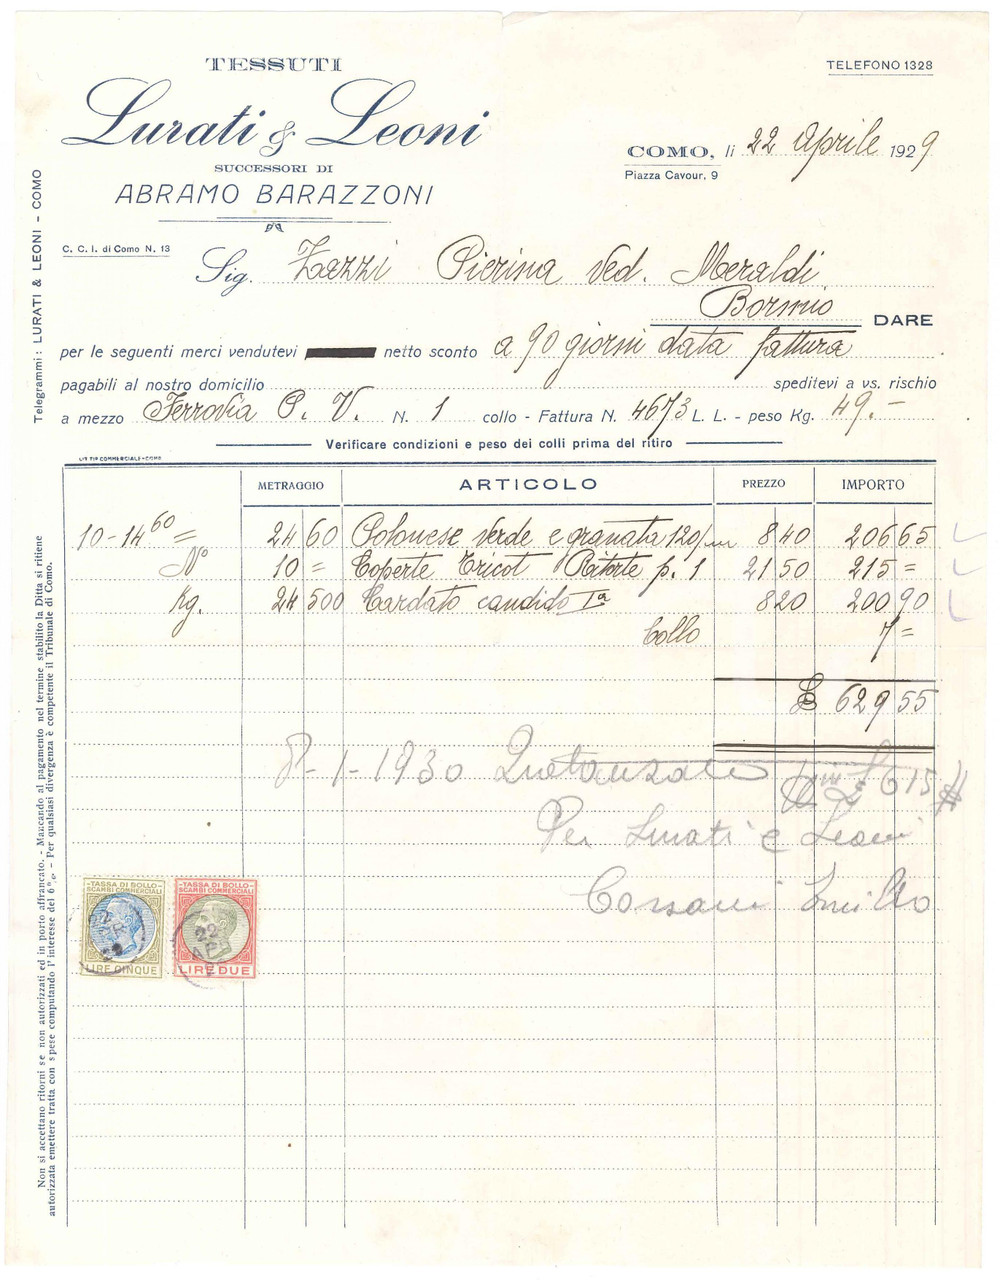 TESSUTI
Lurati & Leoni
SUCCESSORI DI
ABRAMO BARAZZONI
TELEFONO 1328
COMO, li 22 Aprile 1929
Piazza Cavour, 9
C. C. I. di Como N. 13
Telegrammi: LURATI & LEONI - COMO
Sig. Zazzi Pierina Ved. Meraldi
Bormio
DARE
per le seguenti merci vendutevi netto sconto a 90 giorni data fattura
pagabili al nostro domicilio speditevi a vs. rischio
a mezzo Ferrovia P. V. N. 1 collo - Fattura N. 4673 L. L. - peso Kg. 49.-
Verificare condizioni e peso dei colli prima del ritiro
LIT. TIP. COMMERCIALE - COMO
METRAGGIO ARTICOLO PREZZO IMPORTO
10-14 60 = 24 60 Polonese verde e granata 120/m 8 40 206 65
N° 10 = Coperte Tricot Ritorte p. 1 21 50 215 =
Kg. 24 500 Cardato candido Ia 8 20 200 90
Collo 7 =
£ 629 55
8-1-1930 Quietanzato £ 615
Per Lurati e Leoni
Corsani Emilio
TASSA DI BOLLO
SCAMBI COMMERCIALI
LIRE CINQUE
TASSA DI BOLLO
SCAMBI COMMERCIALI
LIRE DUE
Non si accettano ritorni se non autorizzati ed in porto affrancato. - Mancando al pagamento nel termine stabilito la Ditta si ritiene
autorizzata emettere tratta con spese computando l'interesse del 6 % - Per qualsiasi divergenza è competente il Tribunale di Como.